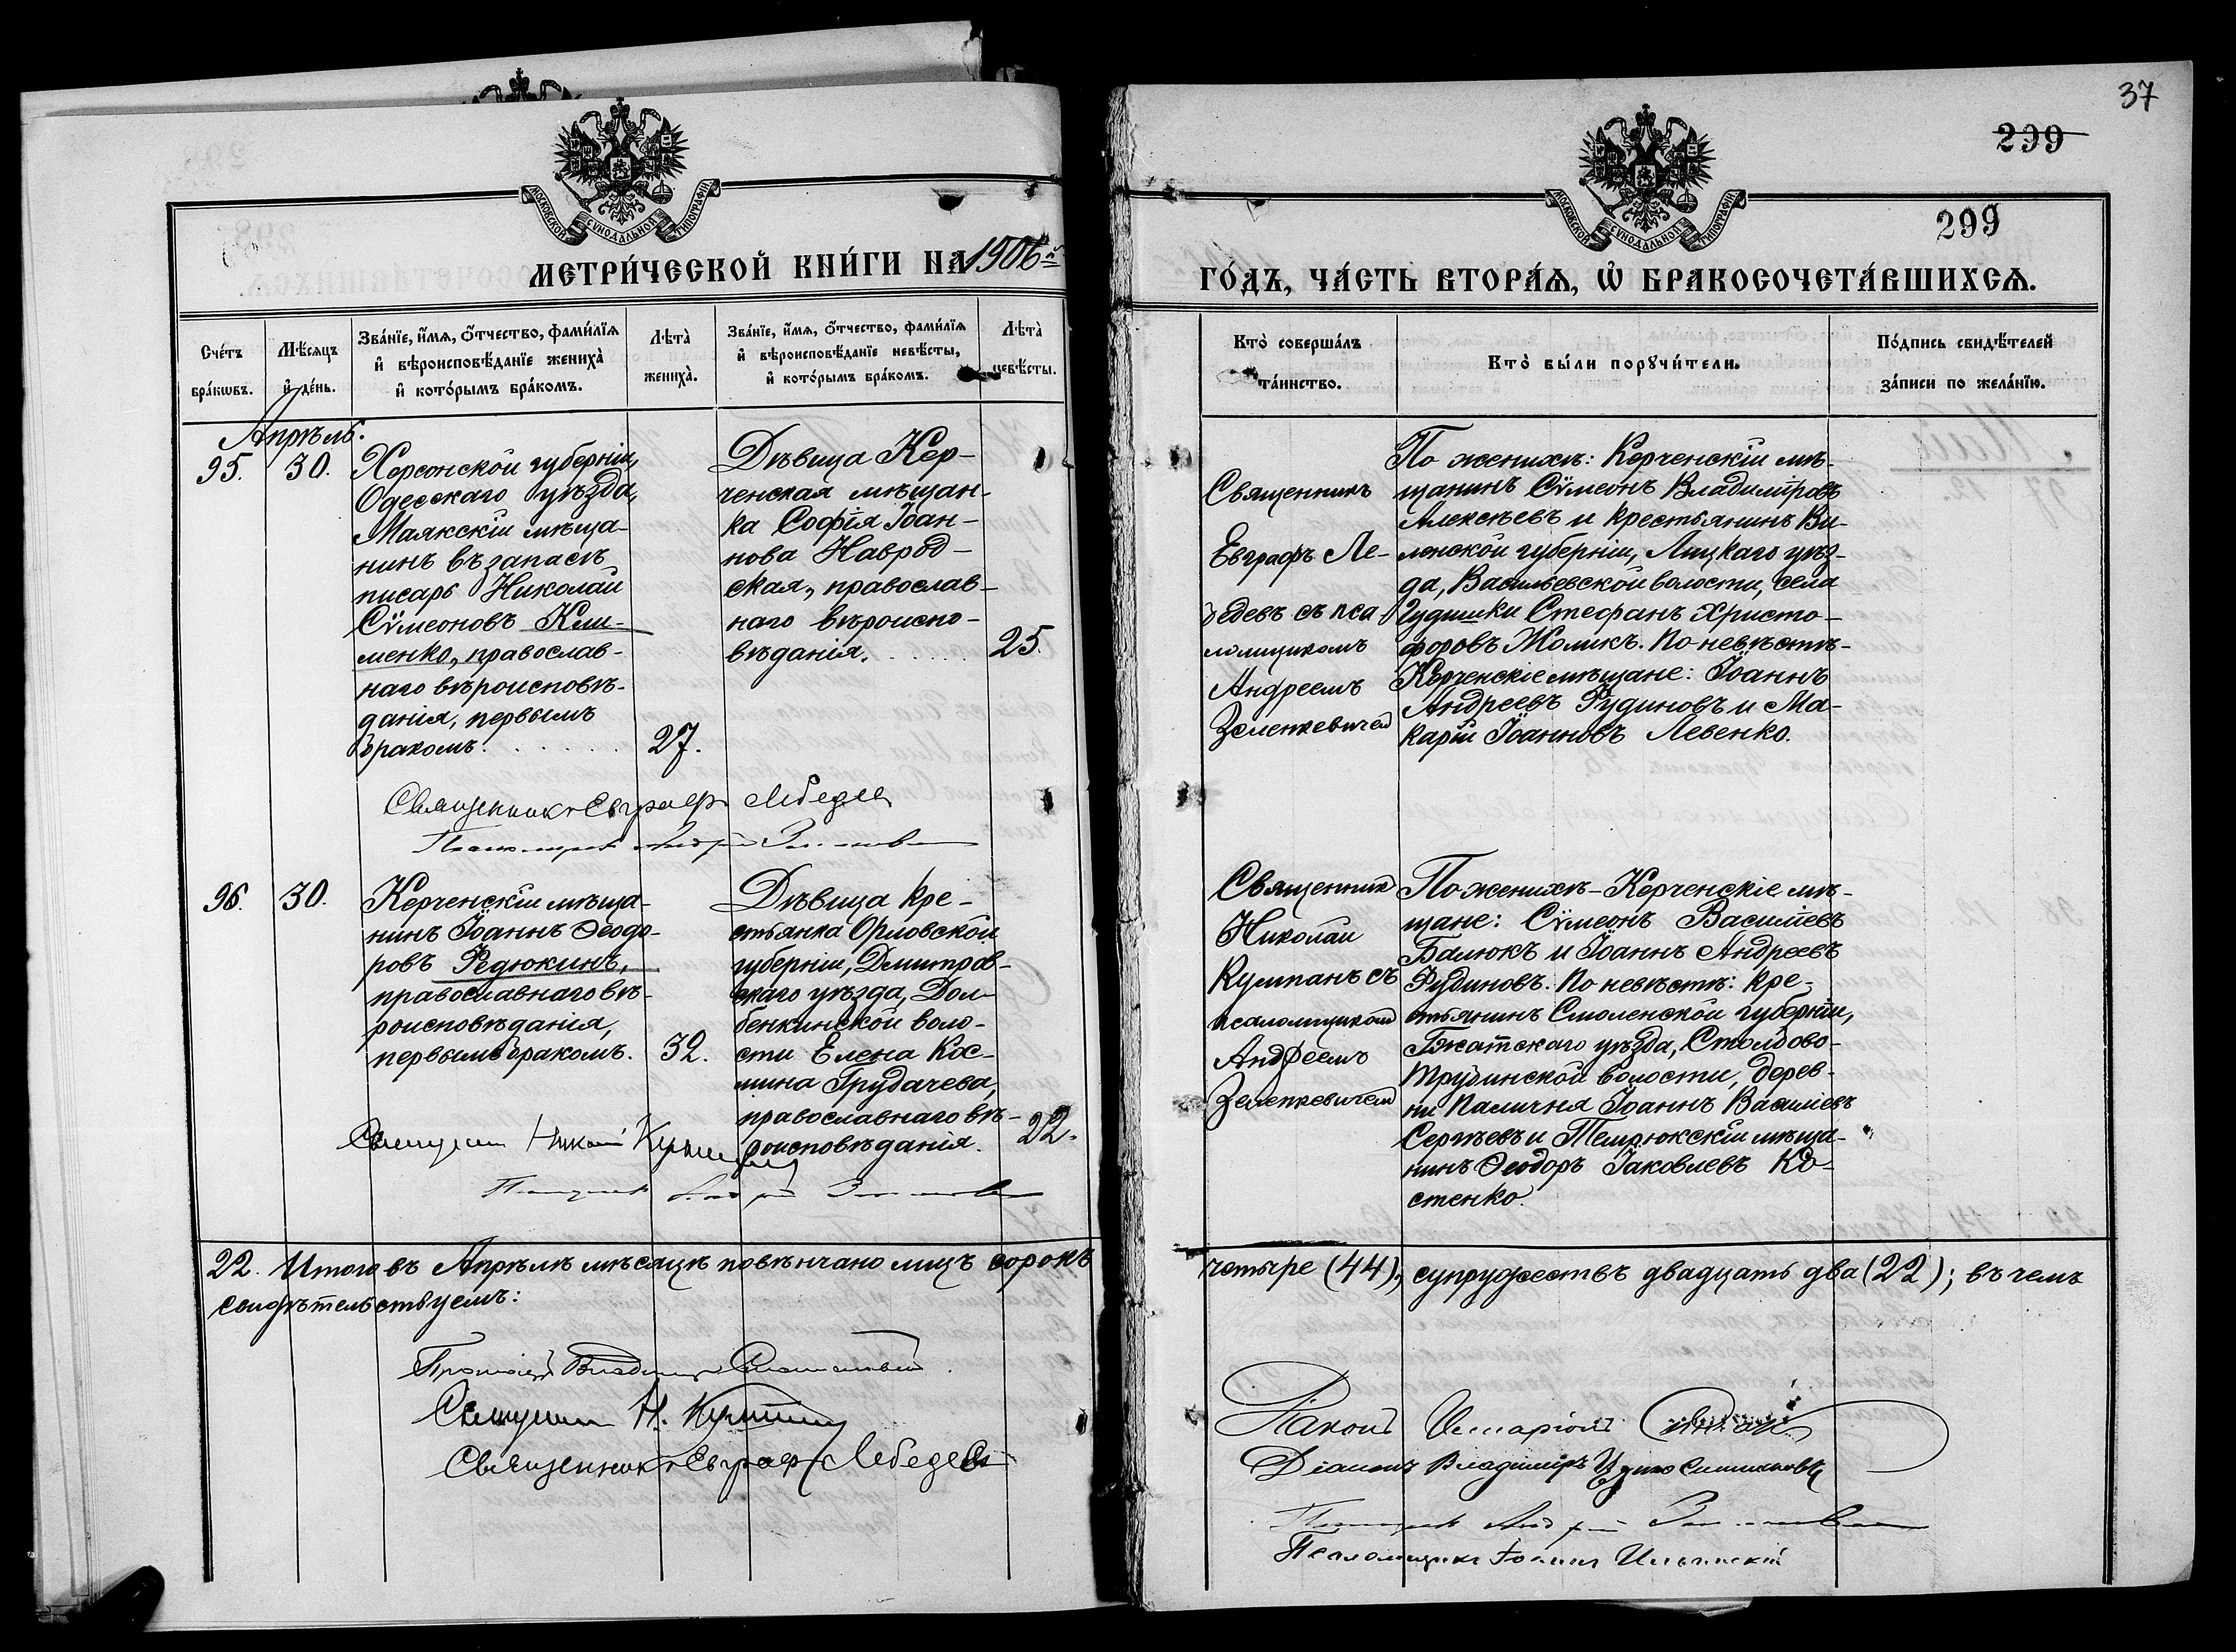 37
299
299
МОСКОВСКОЙ СУНОДАЛЬНОЙ ТИПОГРАФІИ
МОСКОВСКОЙ СУНОДАЛЬНОЙ ТИПОГРАФІИ
МЕТРИ́ЧЕСКОЙ КНИ́ГИ НА 1906й
ГО́ДЪ, ЧА́СТЬ ВТОРА́Ѧ, Ѡ БРАКОСОЧЕТА́ВШИХСѦ.
Сче́тъ бра́кѡвъ.
Мѣ́сяцъ и де́нь.
Зва́нїе, и́мѧ, ѻ́тчество, фами́лїѧ
и҆ вѣроисповѣ́данїе жениха̀
и҆ кото́рымъ бра́комъ.
Лѣта̀ жениха̀.
Зва́нїе, и́мѧ, ѻ́тчество, фами́лїѧ
и҆ вѣроисповѣ́данїе невѣ́сты,
и҆ кото́рымъ бра́комъ.
Лѣта̀ невѣ́сты.
Кто̀ соверша́лъ та́инство.
Кто̀ бы́ли порꙋчи́тели.
По́дпись свидѣ́телей
за́писи по жела́нїю.
Апрѣль.
95.
30.
Херсонской губерніи,
Одесскаго уѣзда,
Маякскій мѣща-
нинъ въ запасѣ
писарь Николай
Сѵмеоновъ Кли-
менко, православ-
наго вѣроисповѣ-
данія, первымъ
бракомъ.
27.
Дѣвица Кер-
ченская мѣщан-
ка Софія Іоан-
нова Наврод-
ская, православ-
наго вѣроиспо-
вѣданія.
25.
Священникъ
Евграфъ Ле-
бедевъ съ пса
ломщикомъ
Андреемъ
Зеленкевичем
По женихѣ: Керченскій мѣ-
щанинъ Сѵмеонъ Владиміровъ
Алексѣевъ и крестьянинъ Ви-
ленской губерніи, Лидскаго уѣз-
да, Васильевской волости, села
Гудишки Стефанъ Христо-
форовъ Жоликъ. По невѣстѣ-
Керченскіе мѣщане: Іоаннъ
Андреевъ Рудиновъ и Ма-
карій Іоанновъ Левенко.
Священникъ Евграфъ Лебедевъ
96.
30.
Керченскій мѣща-
нинъ Іоаннъ Ѳеодо-
ровъ Редюкинъ,
православнаго вѣ-
роисповѣданія,
первымъ бракомъ.
32.
Дѣвица кре-
стьянка Орловской
губерніи, Дмитров-
скаго уѣзда, Дол-
бенкинской воло-
сти Елена Кос-
мина Грудачева,
православнаго вѣ-
роисповѣданія.
22.
Священник
Николай
Кулпанъ съ
псаломщиком
Андреемъ
Зеленкевичем
По женихѣ - Керченскіе мѣ-
щане: Сѵмеонъ Василіевъ
Балюкъ и Іоаннъ Андреевъ
Рудиновъ. По невѣстѣ: кре-
стьянинъ Смоленской губерніи,
Гжатскаго уѣзда, Столбово-
Трубинской волости, дерев-
ни Паличня Іоаннъ Василіевъ
Сергѣевъ и Темрюкскій мѣща-
нинъ Ѳеодоръ Іаковлевъ Ко-
стенко.
22. Итого въ Апрѣлѣ мѣсяцѣ повѣнчано лицъ сорокъ
четыре (44), супружествъ двадцать два (22); въ чемъ
свидѣтельствуемъ:
Священникъ Евграфъ Лебедевъ
Діаконъ
Діаконъ Владиміръ
Псаломщикъ Іоаннъ